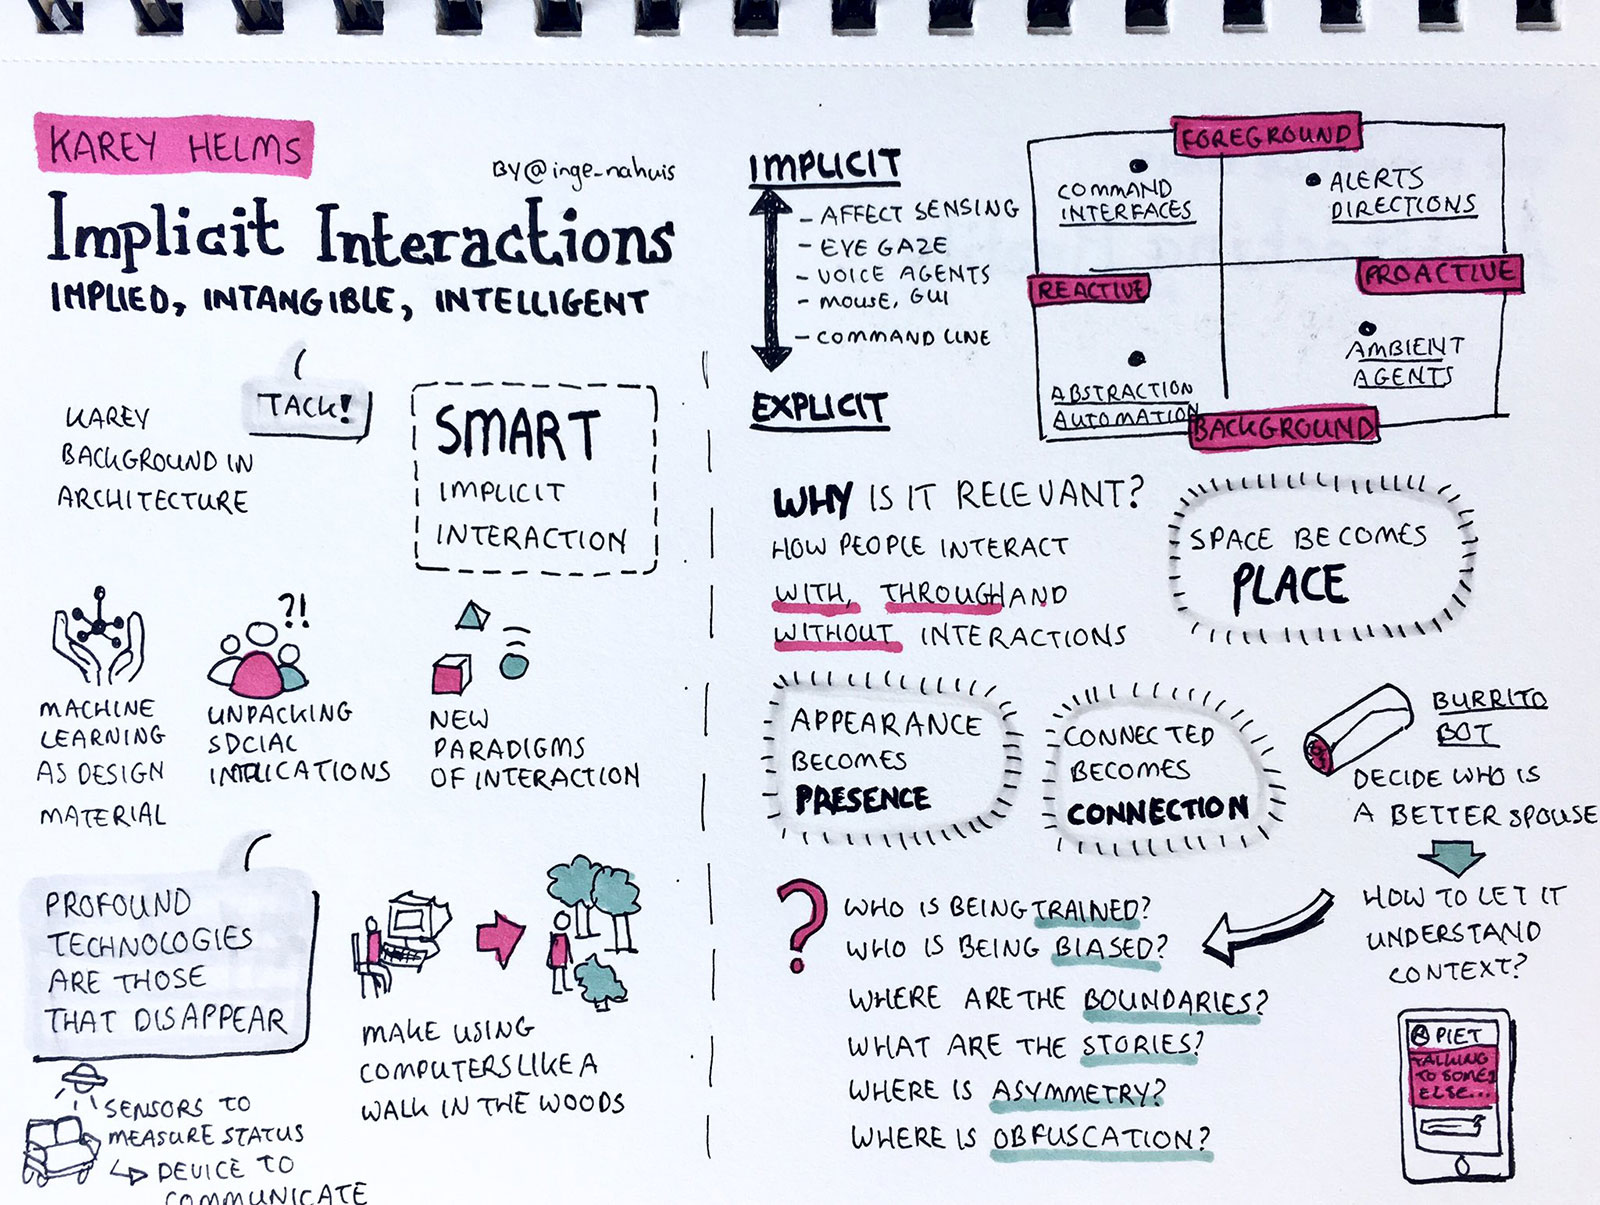 KAREY HELMS
BY @inge_nahuis
Implicit Interactions
IMPLIED, INTANGIBLE, INTELLIGENT
TACK!
KAREY
BACKGROUND IN
ARCHITECTURE
SMART
IMPLICIT
INTERACTION
MACHINE
LEARNING
AS DESIGN
MATERIAL
?!
UNPACKING
SOCIAL
IMPLICATIONS
NEW
PARADIGMS
OF INTERACTION
PROFOUND
TECHNOLOGIES
ARE THOSE
THAT DISAPPEAR
MAKE USING
COMPUTERS LIKE A
WALK IN THE WOODS
SENSORS TO
MEASURE STATUS
DEVICE TO
COMMUNICATE
IMPLICIT
- AFFECT SENSING
- EYE GAZE
- VOICE AGENTS
- MOUSE, GUI
- COMMAND LINE
EXPLICIT
FOREGROUND
COMMAND
INTERFACES
ALERTS
DIRECTIONS
REACTIVE
PROACTIVE
ABSTRACTION
AUTOMATION
AMBIENT
AGENTS
BACKGROUND
WHY IS IT RELEVANT?
HOW PEOPLE INTERACT
WITH, THROUGH AND
WITHOUT INTERACTIONS
SPACE BECOMES
PLACE
APPEARANCE
BECOMES
PRESENCE
CONNECTED
BECOMES
CONNECTION
BURRITO
BOT
DECIDE WHO IS
A BETTER SPOUSE
HOW TO LET IT
UNDERSTAND
CONTEXT?
?
WHO IS BEING TRAINED?
WHO IS BEING BIASED?
WHERE ARE THE BOUNDARIES?
WHAT ARE THE STORIES?
WHERE IS ASYMMETRY?
WHERE IS OBFUSCATION?
PIET
TALKING
TO SOME1
ELSE...